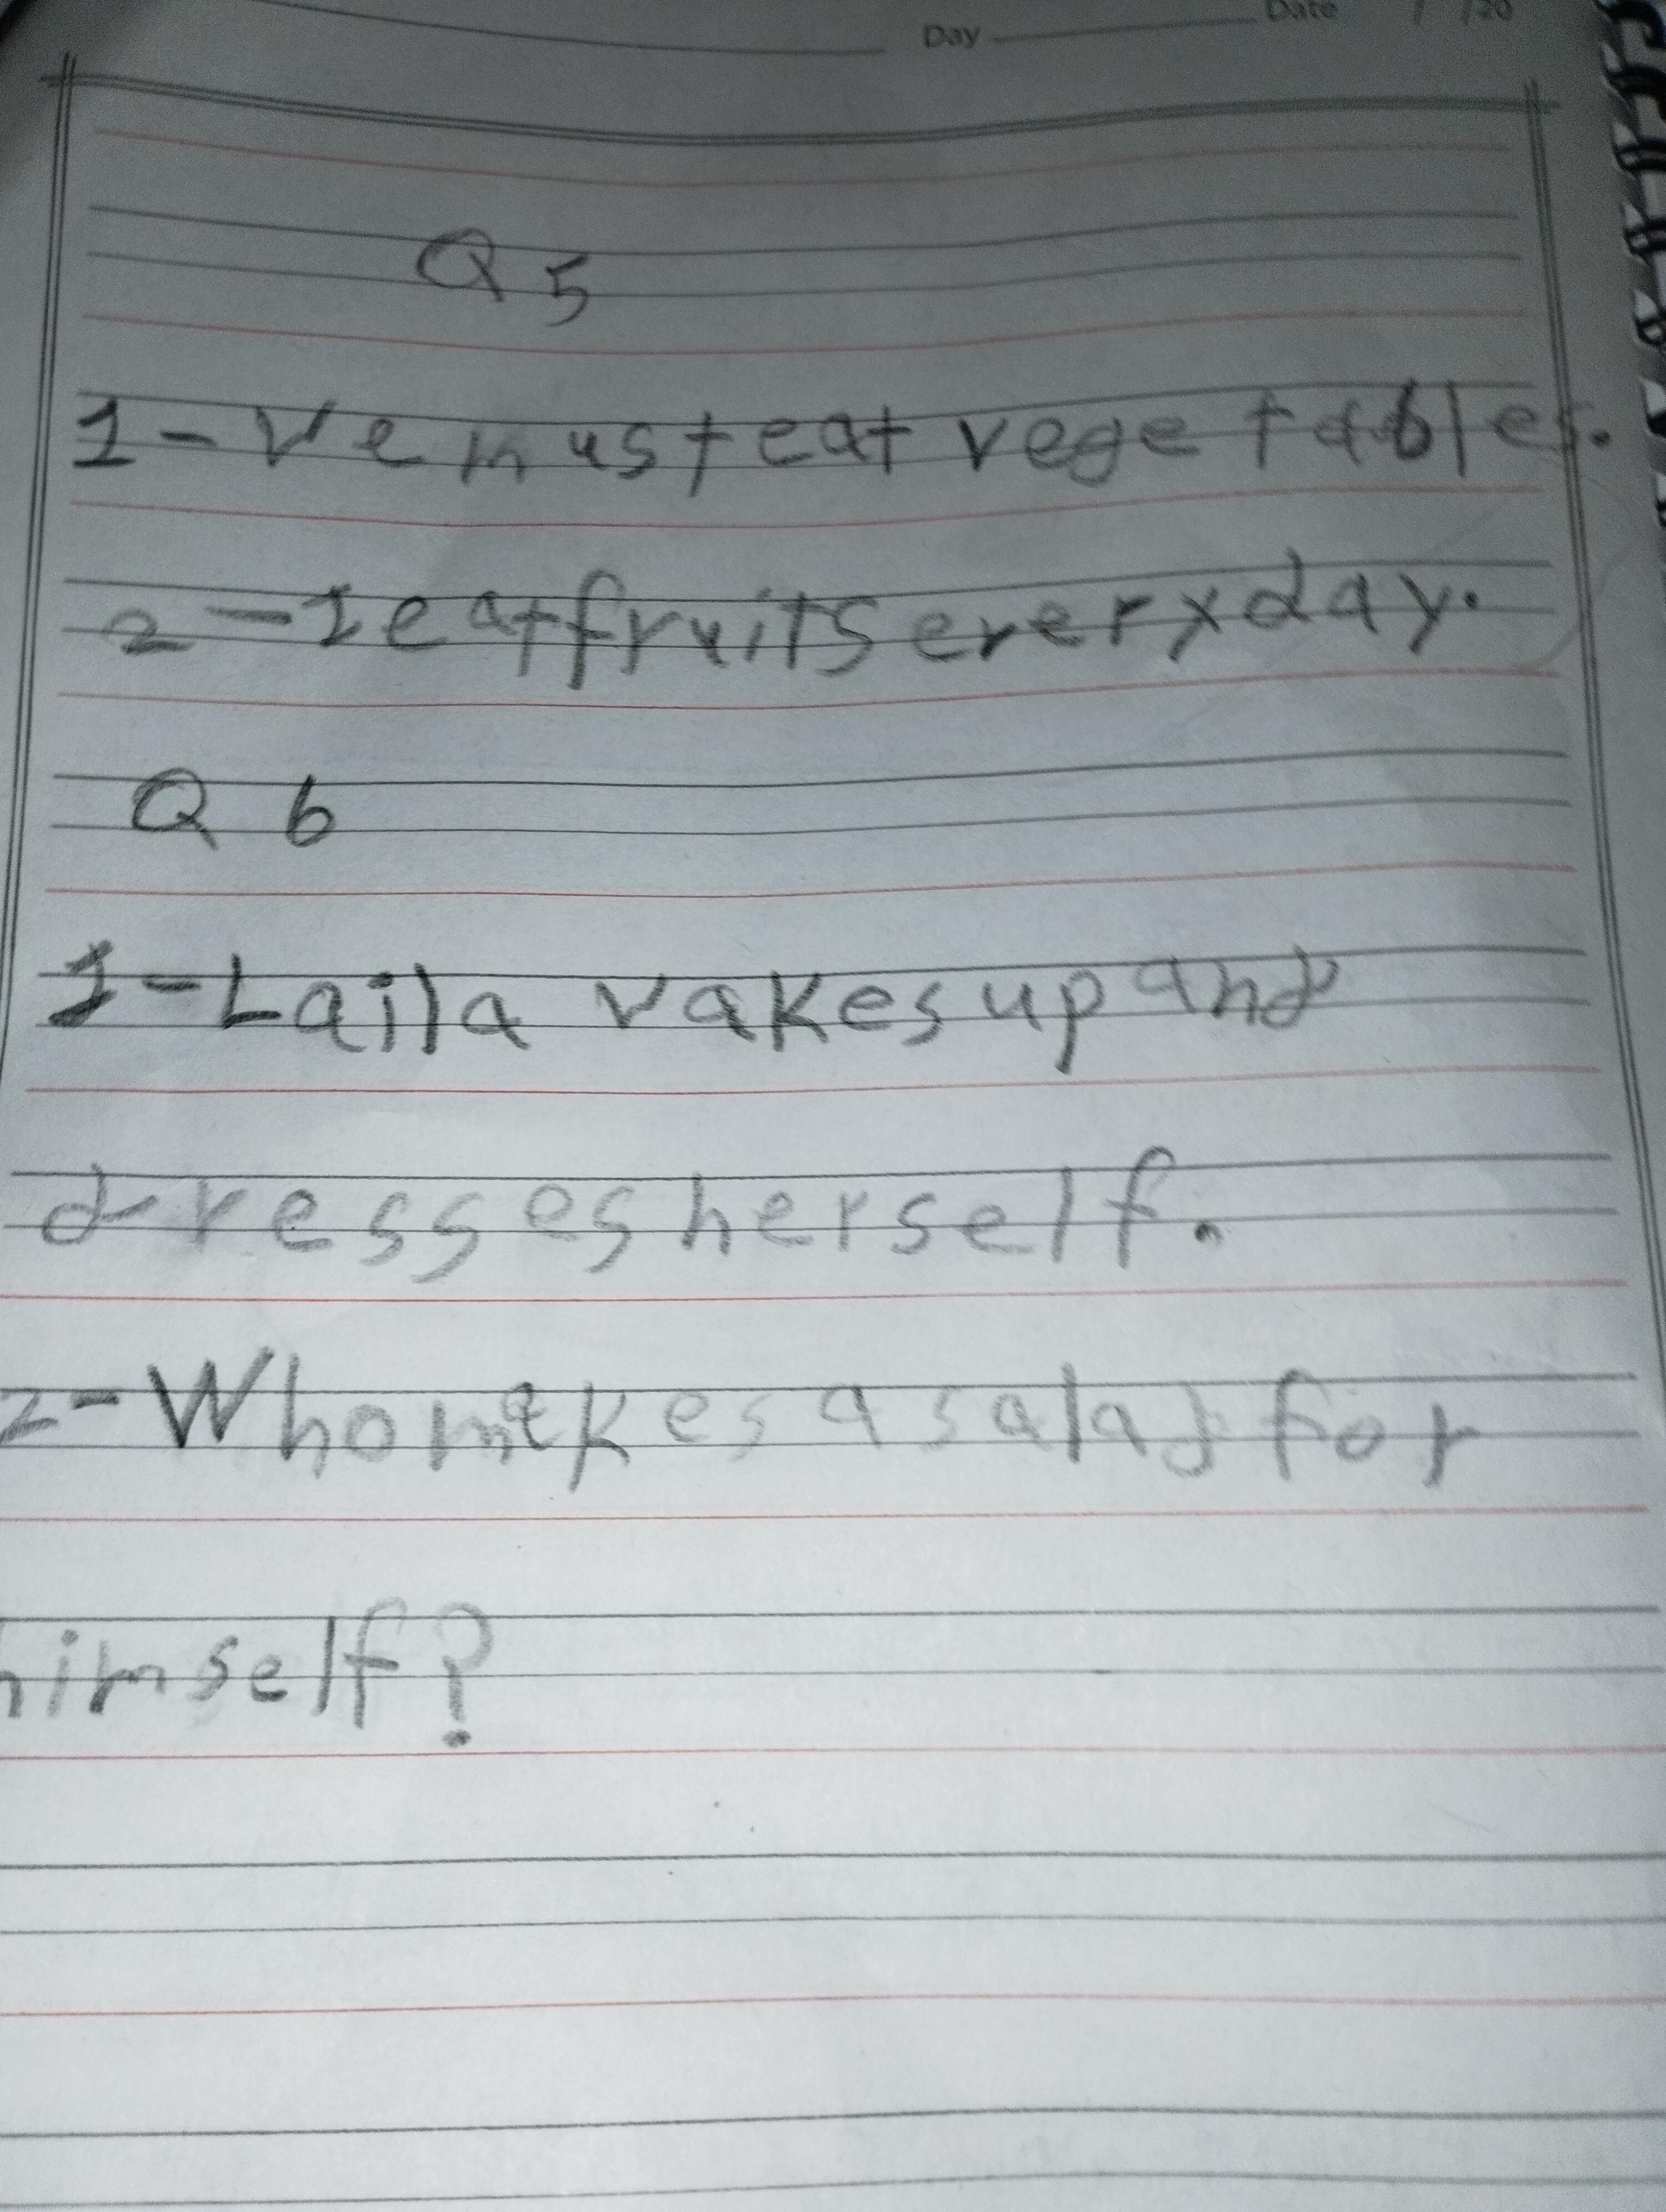 Day Date / /20
Q 5
1- We must eat vegetables.
2- I eat fruits every day.
Q 6
1- Laila wakes up and
dresses herself.
2- Who makes a salad for
himself?